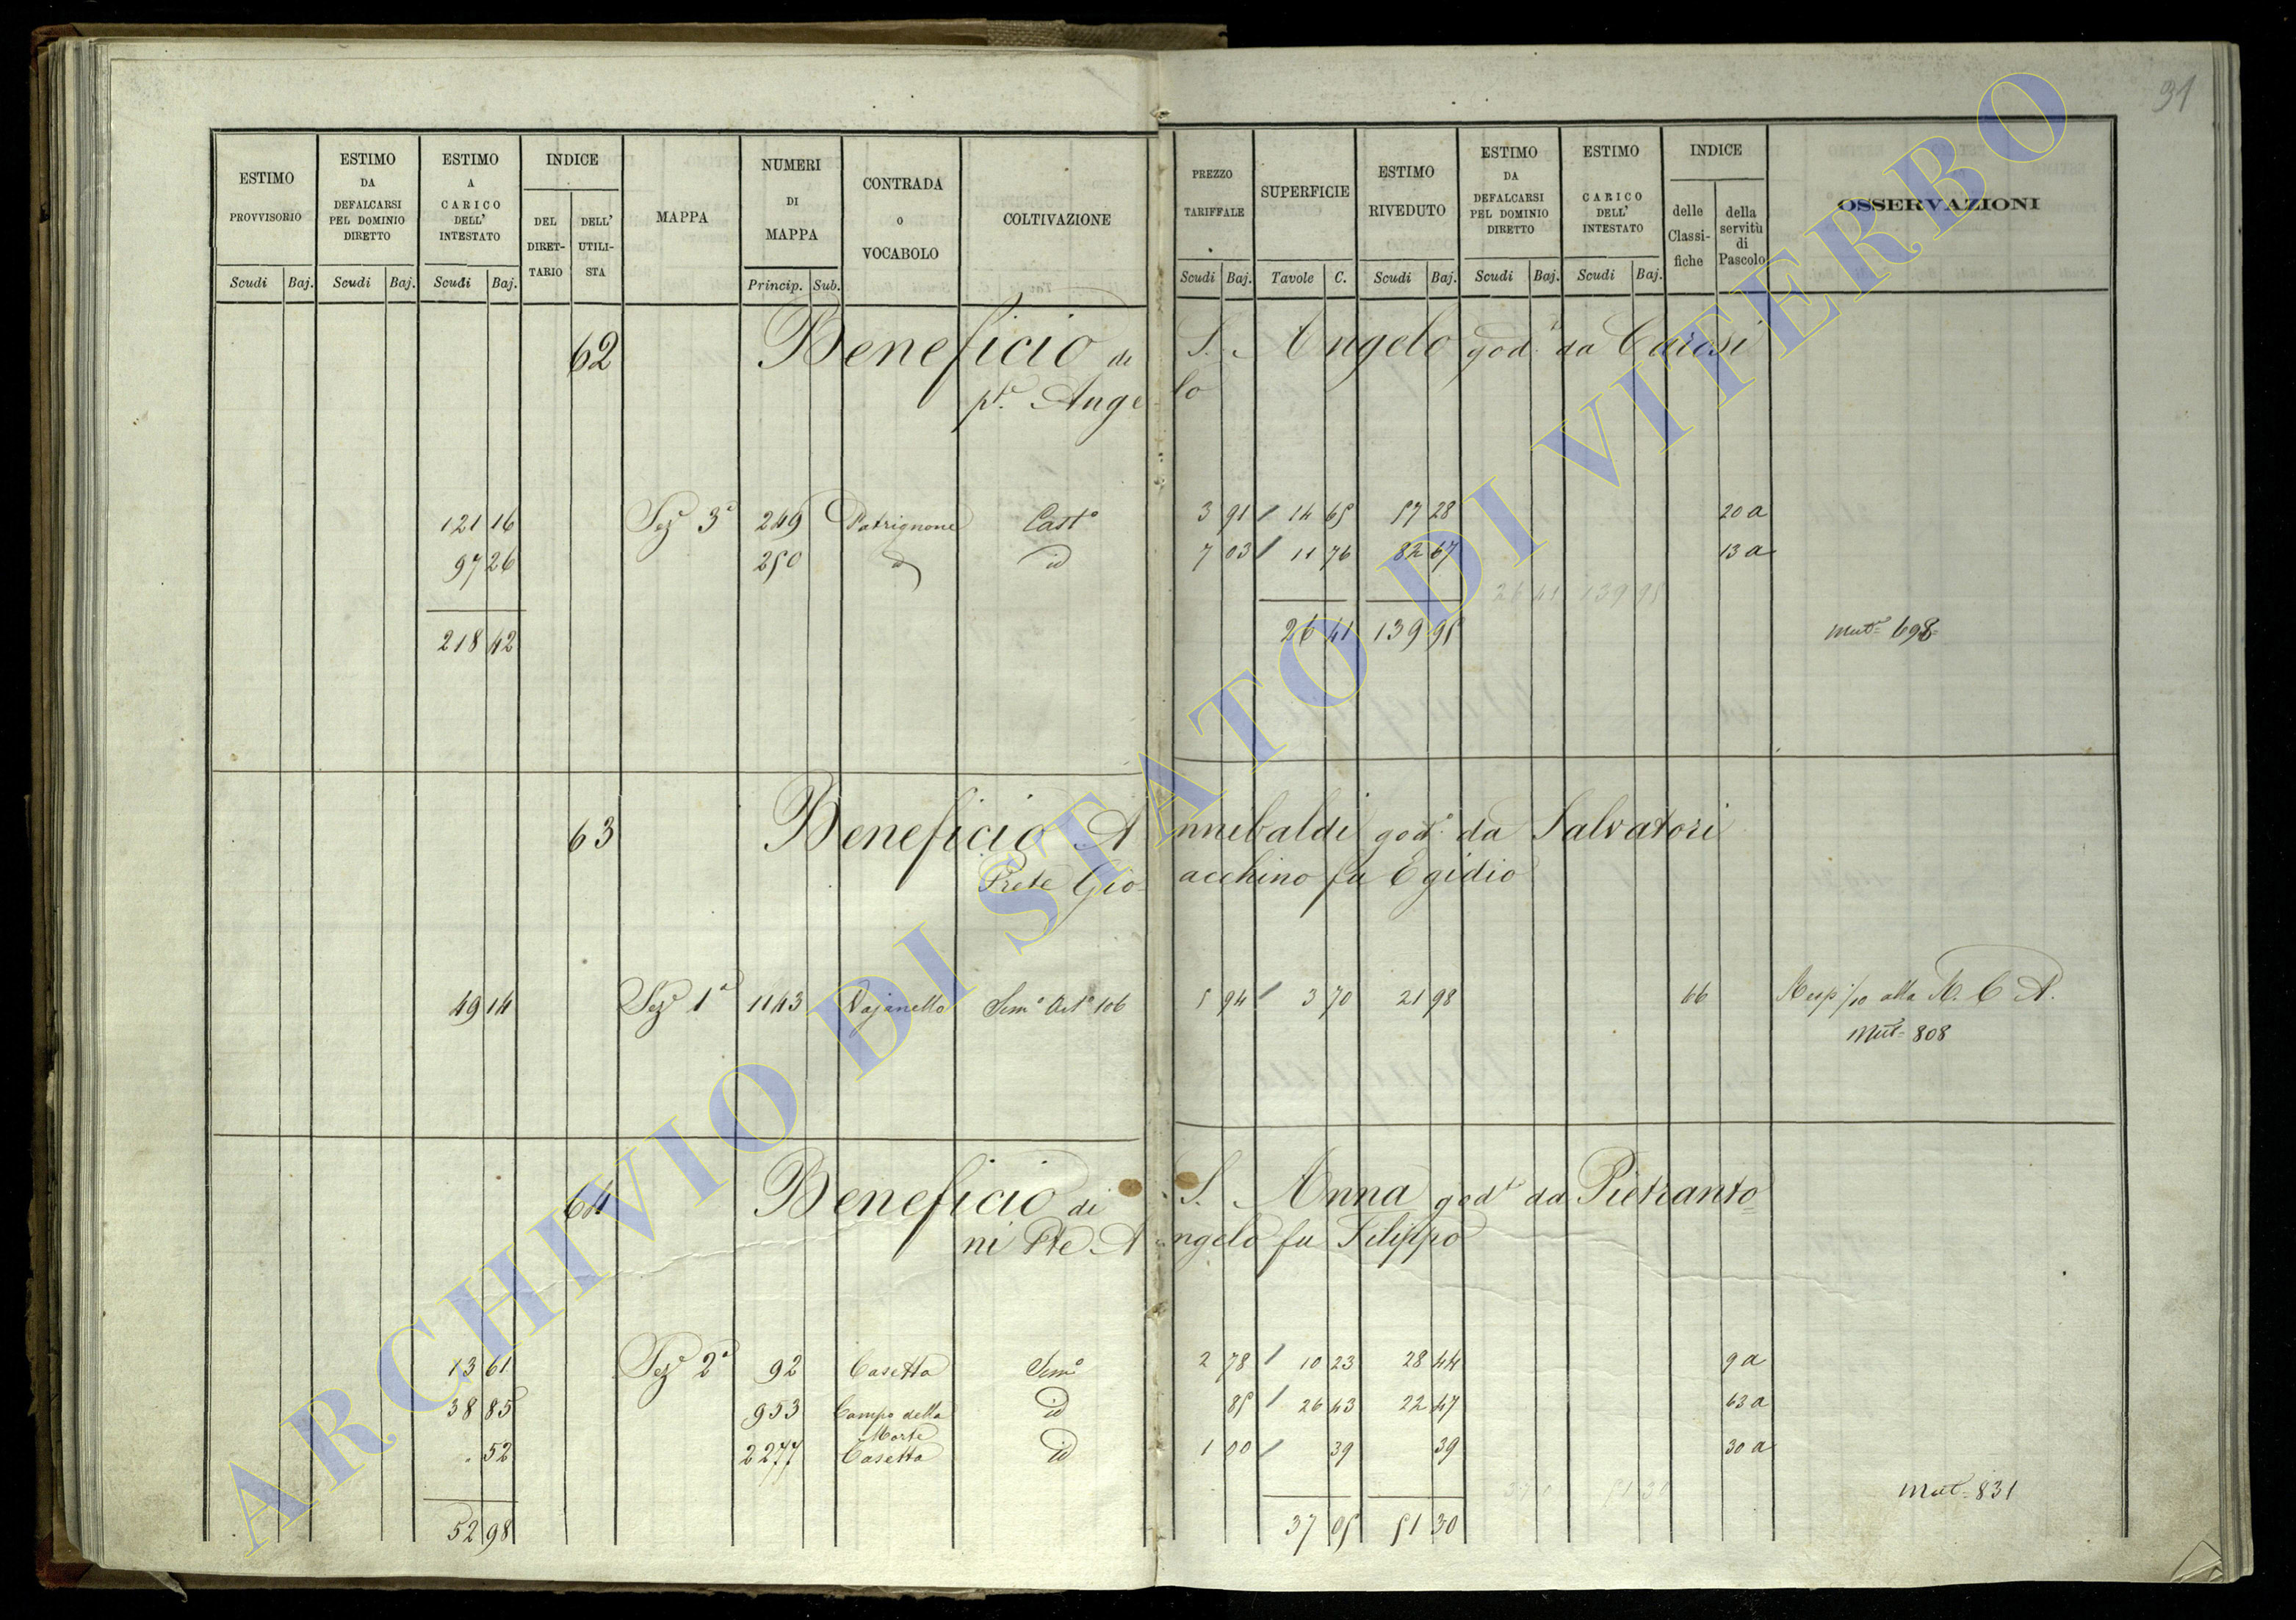 91
ESTIMO PROVVISORIO
ESTIMO DA DEFALCARSI PEL DOMINIO DIRETTO
ESTIMO A CARICO DELL' INTESTATO
INDICE
DEL DIRET-TARIO
DELL' UTILI-STA
MAPPA
NUMERI DI MAPPA
CONTRADA O VOCABOLO
COLTIVAZIONE
PREZZO TARIFFALE
SUPERFICIE
ESTIMO RIVEDUTO
ESTIMO DA DEFALCARSI PEL DOMINIO DIRETTO
ESTIMO CARICO DELL' INTESTATO
INDICE
delle Classi-fiche
della servitù di Pascolo
OSSERVAZIONI
Scudi Baj. Scudi Baj. Scudi Baj. Princip. Sub. Scudi Baj. Tavole C. Scudi Baj. Scudi Baj. Scudi Baj.
62 Beneficio di S. Angelo god.o da Carosi
p.te Angelo
121 16 Sez.e 3a 249 Patrignone Cast.o 3 91 14 65 57 28 20 a
97 26 250 id 7 03 11 76 82 67 13 a
26 41 139 95
218 42 26 41 139 95 Mut.= 698
63 Beneficio Annibaldi god.o da Salvatori
Prete Gioacchino fu Egidio
49 14 Sez.e 1a 1143 Vajanello Sem.o Art.o 106 5 94 3 70 21 98 66 Resp 1/10 alla R. C. A.
Mut= 808
64 Beneficio di S. Anna god.o da Pietranto=
ni Pte Angelo fu Filippo
13 61 Sez.e 2a 92 Casetta Sem.o 2 78 10 23 28 44 9 a
38 85 953 Campo della Morte id 85 26 43 22 47 63 a
. 52 2277 Casetta id 1 00 39 39 30 a
Mut= 831
52 98 37 05 51 30
ARCHIVIO DI STATO DI VITERBO